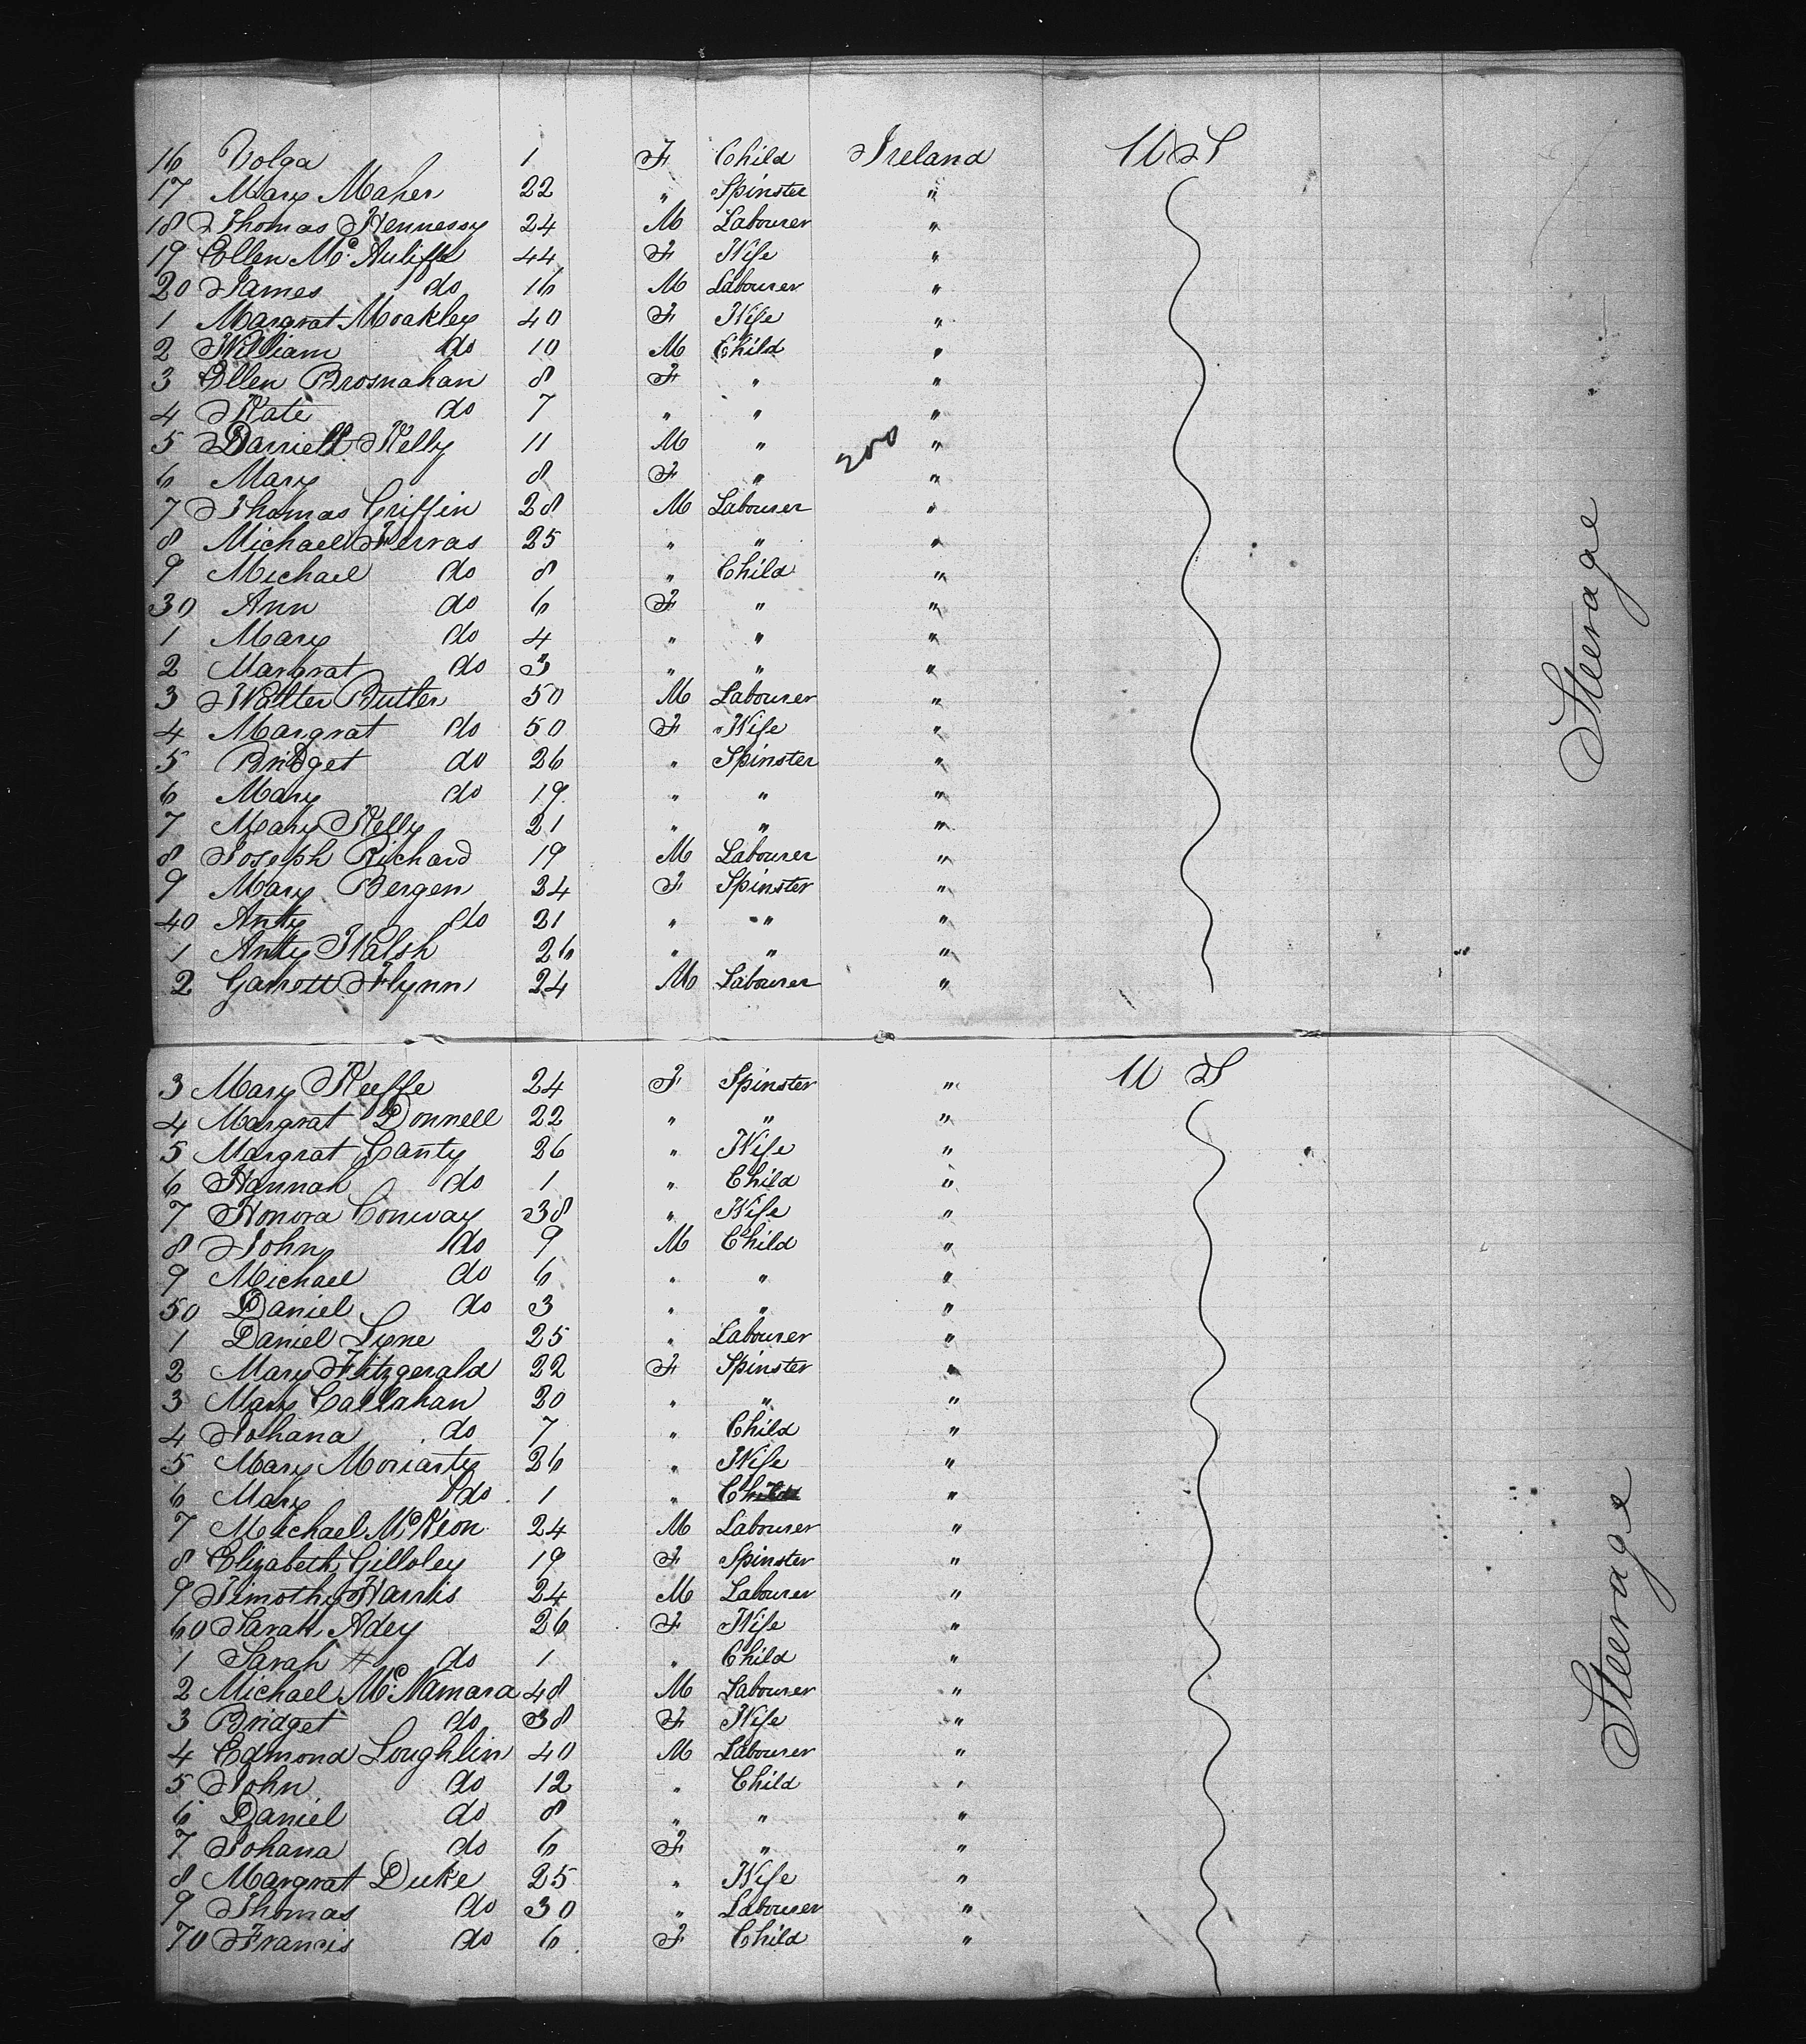 16 Volga 1 F Child Ireland U S
17 Mary Maher 22 " Spinster "
18 Thomas Hennessy 24 M Labourer "
19 Ellen McAuliffe 44 F Wife "
20 James do 16 M Labourer "
1 Margrat Moakley 40 F Wife "
2 William do 10 M Child "
3 Ellen Brosnahan 8 F " "
4 Kate do 7 " " "
5 Daniell Kelly 11 M " "
200
6 Mary 8 F " "
7 Thomas Griffin 28 M Labourer "
8 Michael Ferras 25 " " "
9 Michael do 8 " Child "
30 Ann do 6 F " "
1 Mary do 4 " " "
2 Margrat do 3 " " "
3 Walter Butler 50 M Labourer "
4 Margrat do 50 F Wife "
5 Bridget do 26 " Spinster "
6 Mary do 19 " " "
7 Mary Kelly 21 " " "
8 Joseph Richard 19 M Labourer "
9 Mary Bergen 24 F Spinster "
40 Anty do 21 " " "
1 Anty Walsh 26 " " "
2 Garrett Flynn 24 M Labourer "
Steerage
3 Mary Keeffe 24 F Spinster " U S
4 Margrat Donnell 22 " " "
5 Margrat Canty 26 " Wife "
6 Hannah do 1 " Child "
7 Honora Conway 38 " Wife "
8 John do 9 M Child "
9 Michael do 6 " " "
50 Daniel do 3 " " "
1 Daniel Lyne 25 " Labourer "
2 Mary Fitzgerald 22 F Spinster "
3 Mary Callahan 20 " " "
4 Johana do 7 " Child "
5 Mary Moriarty 26 " Wife "
6 Mary do 1 " Child "
7 Michael McKeon 24 M Labourer "
8 Elizabeth Gilloley 19 F Spinster "
9 Timothy Harris 24 M Labourer "
60 Sarah Adey 26 F Wife "
1 Sarah # do 1 " Child "
2 Michael McNamara 48 M Labourer "
3 Bridget do 38 F Wife "
4 Edmond Loughlin 40 M Labourer "
5 John do 12 " Child "
6 Daniel do 8 " " "
7 Johana do 6 F " "
8 Margrat Duke 25 " Wife "
9 Thomas do 30 " Labourer "
70 Francis do 6 F Child "
Steerage